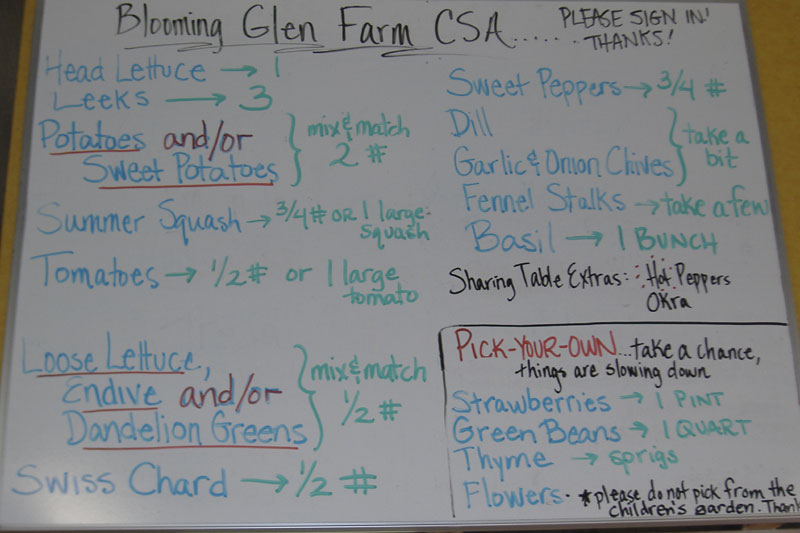 Blooming Glen Farm CSA..... PLEASE SIGN IN! THANKS!
Head Lettuce → 1
Leeks → 3
Potatoes and/or
Sweet Potatoes
mix & match
2 #
Summer Squash → 3/4 # OR 1 large squash
Tomatoes → 1/2 # or 1 large tomato
Loose Lettuce,
Endive and/or
Dandelion Greens
mix & match
1/2 #
Swiss Chard → 1/2 #
Sweet Peppers → 3/4 #
Dill
Garlic & Onion Chives
take a
bit
Fennel Stalks → take a few
Basil → 1 BUNCH
Sharing Table Extras: Hot Peppers
Okra
PICK-YOUR-OWN... take a chance,
things are slowing down
Strawberries → 1 PINT
Green Beans → 1 QUART
Thyme → sprigs
Flowers. *please do not pick from the
children's garden. Thank